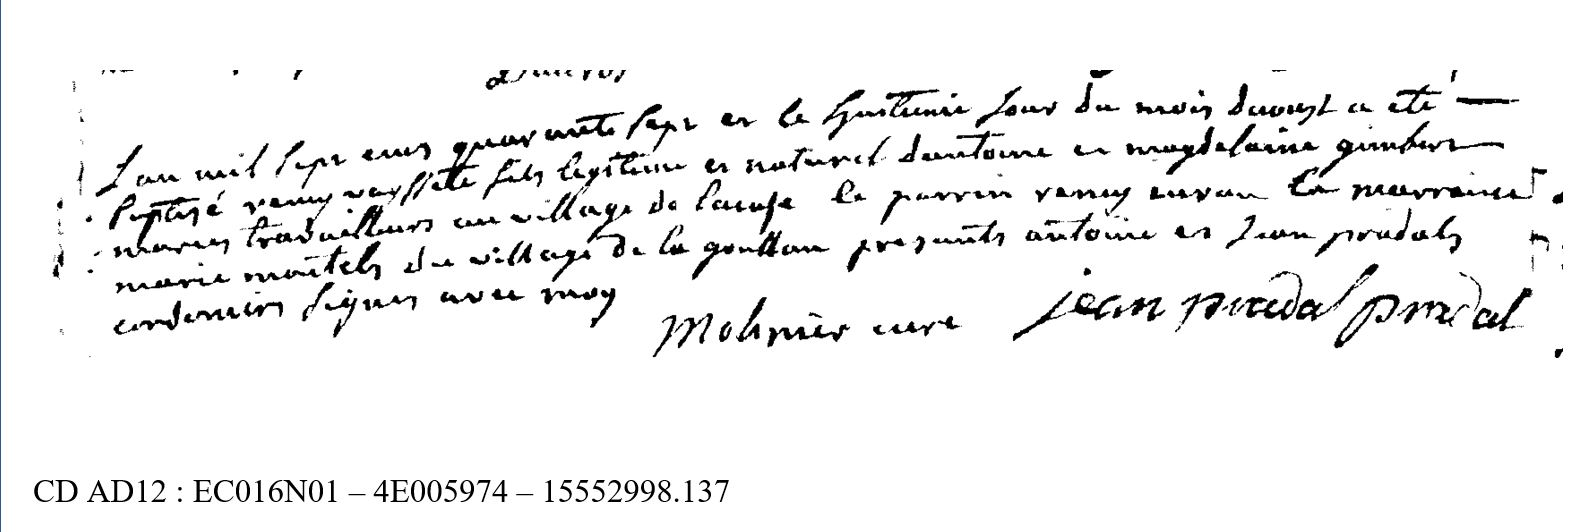 Lan mil sept cens quarante sept et le huitieme jour du mois daoust a eté
baptisé remy vayssete fils legitime et naturel dantoine et magdelaine gimbert
mariés travailleurs au village de le parrin remy la marraine
marie montels du village de la goultou presents antoine et jean pradals
cordoniers signes avec moy
Molinier curé jean pradal pradal
CD AD12 : EC016N01 – 4E005974 – 15552998.137